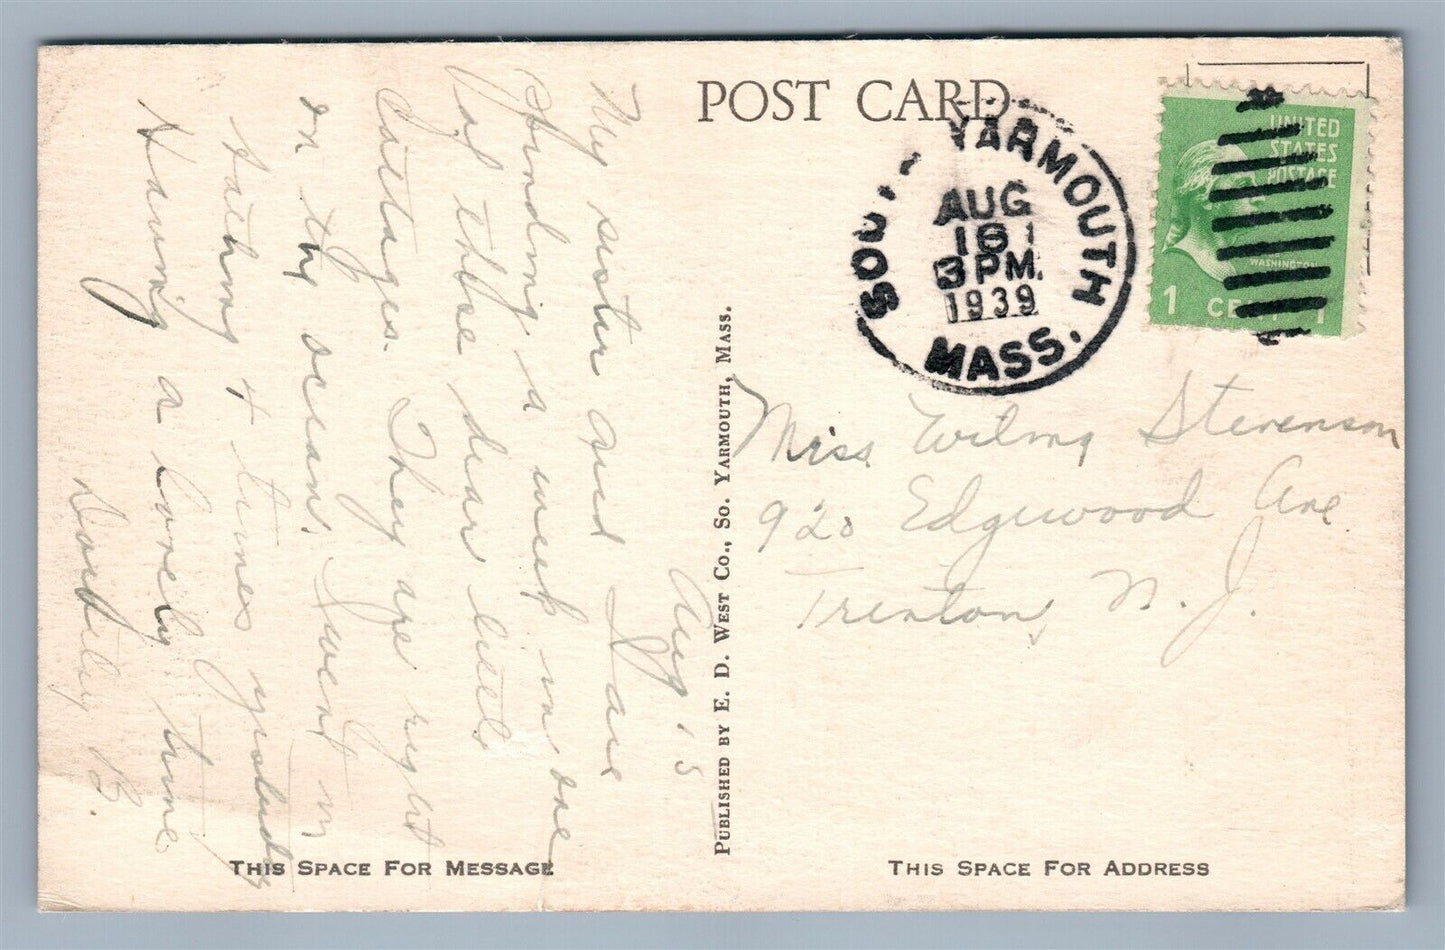 POST CARD
SOUTH YARMOUTH
AUG
16
3 PM.
1939
MASS.
UNITED
STATES
POSTAGE
WASHINGTON
1 CENT 1
Aug 15
My sister and I are
spending a week in one
of these dear little
Cottages. They are right
on the ocean. I went in
bathing 4 times yesterday
Having a lovely time
Dorothy B.
PUBLISHED BY E. D. WEST CO., SO. YARMOUTH, MASS.
Miss Wilma Stevenson
920 Edgewood Ave
Trenton, N. J.
THIS SPACE FOR MESSAGE
THIS SPACE FOR ADDRESS